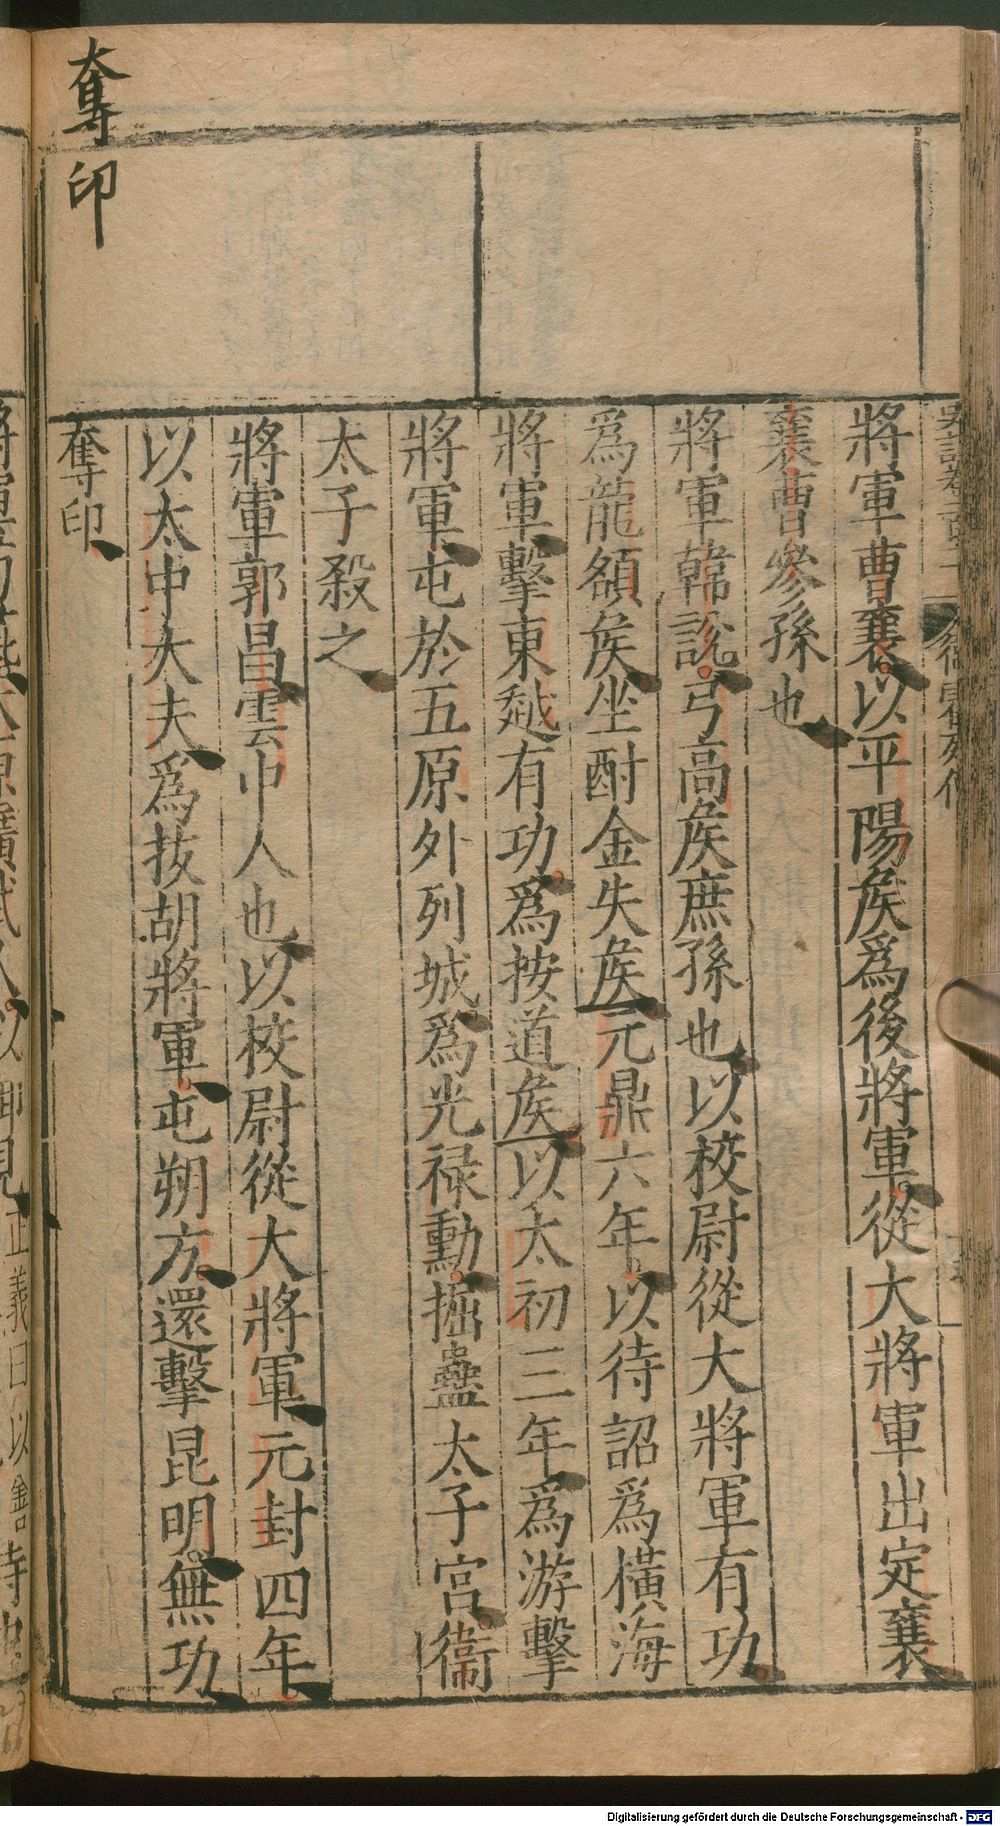 將軍曹襄以平陽矦爲後將軍從大將軍出定襄
襄曹參孫也
將軍韓說弓高矦庶孫也以校尉從大將軍有功
爲龍頟矦坐酎金失矦元鼎六年以待詔爲橫海
將軍擊東越有功爲按道矦以太初三年爲游擊
將軍屯於五原外列城爲光禄勳掘蠱太子宮衞
太子殺之
將軍郭昌雲中人也以校尉從大將軍元封四年
以太中大夫爲抜胡將軍屯朔方還擊昆明無功
奪印
奪印
以御見正義曰以善侍中
Digitalisierung gefördert durch die Deutsche Forschungsgemeinschaft - DFG